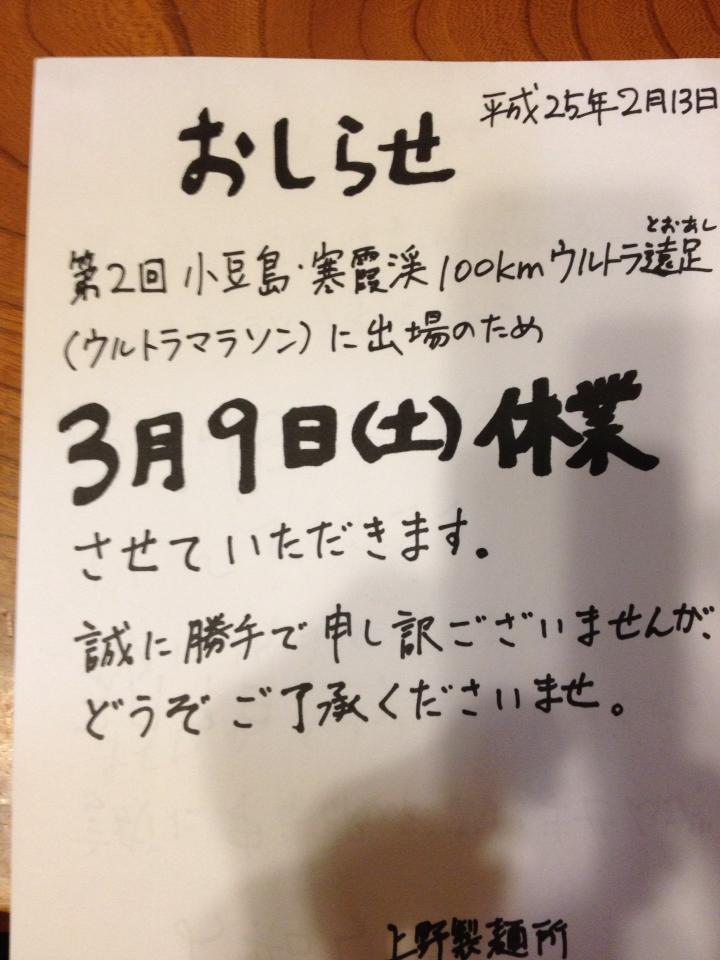 平成25年2月13日
おしらせ
とおあし
第2回 小豆島・寒霞渓100kmウルトラ遠足
(ウルトラマラソン)に出場のため
3月9日(土)休業
させていただきます。
誠に勝手で申し訳ございませんが、
どうぞご了承くださいませ。
上野製麺所